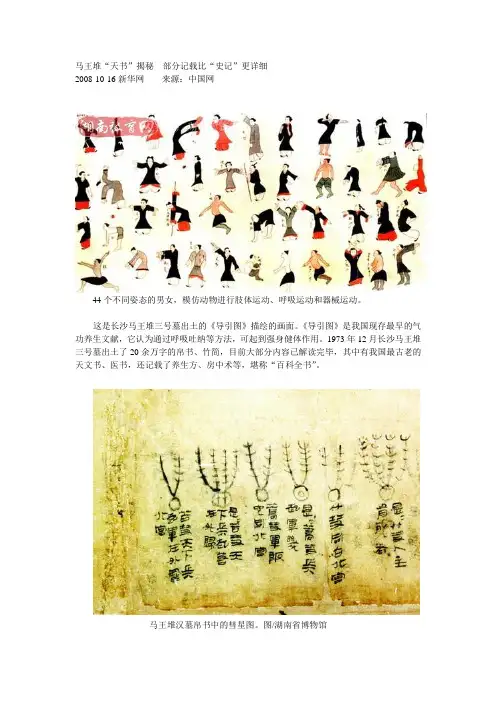 马王堆“天书”揭秘　部分记载比“史记”更详细
2008-10-16 新华网　　来源：中国网
湖南教育网
44 个不同姿态的男女，模仿动物进行肢体运动、呼吸运动和器械运动。
这是长沙马王堆三号墓出土的《导引图》描绘的画面。《导引图》是我国现存最早的气
功养生文献，它认为通过呼吸吐纳等方法，可起到强身健体作用。1973 年 12 月长沙马王堆
三号墓出土了 20 余万字的帛书、竹简，目前大部分内容已解读完毕，其中有我国最古老的
天文书、医书，还记载了养生方、房中术等，堪称“百科全书”。
马王堆汉墓帛书中的彗星图。图/湖南省博物馆